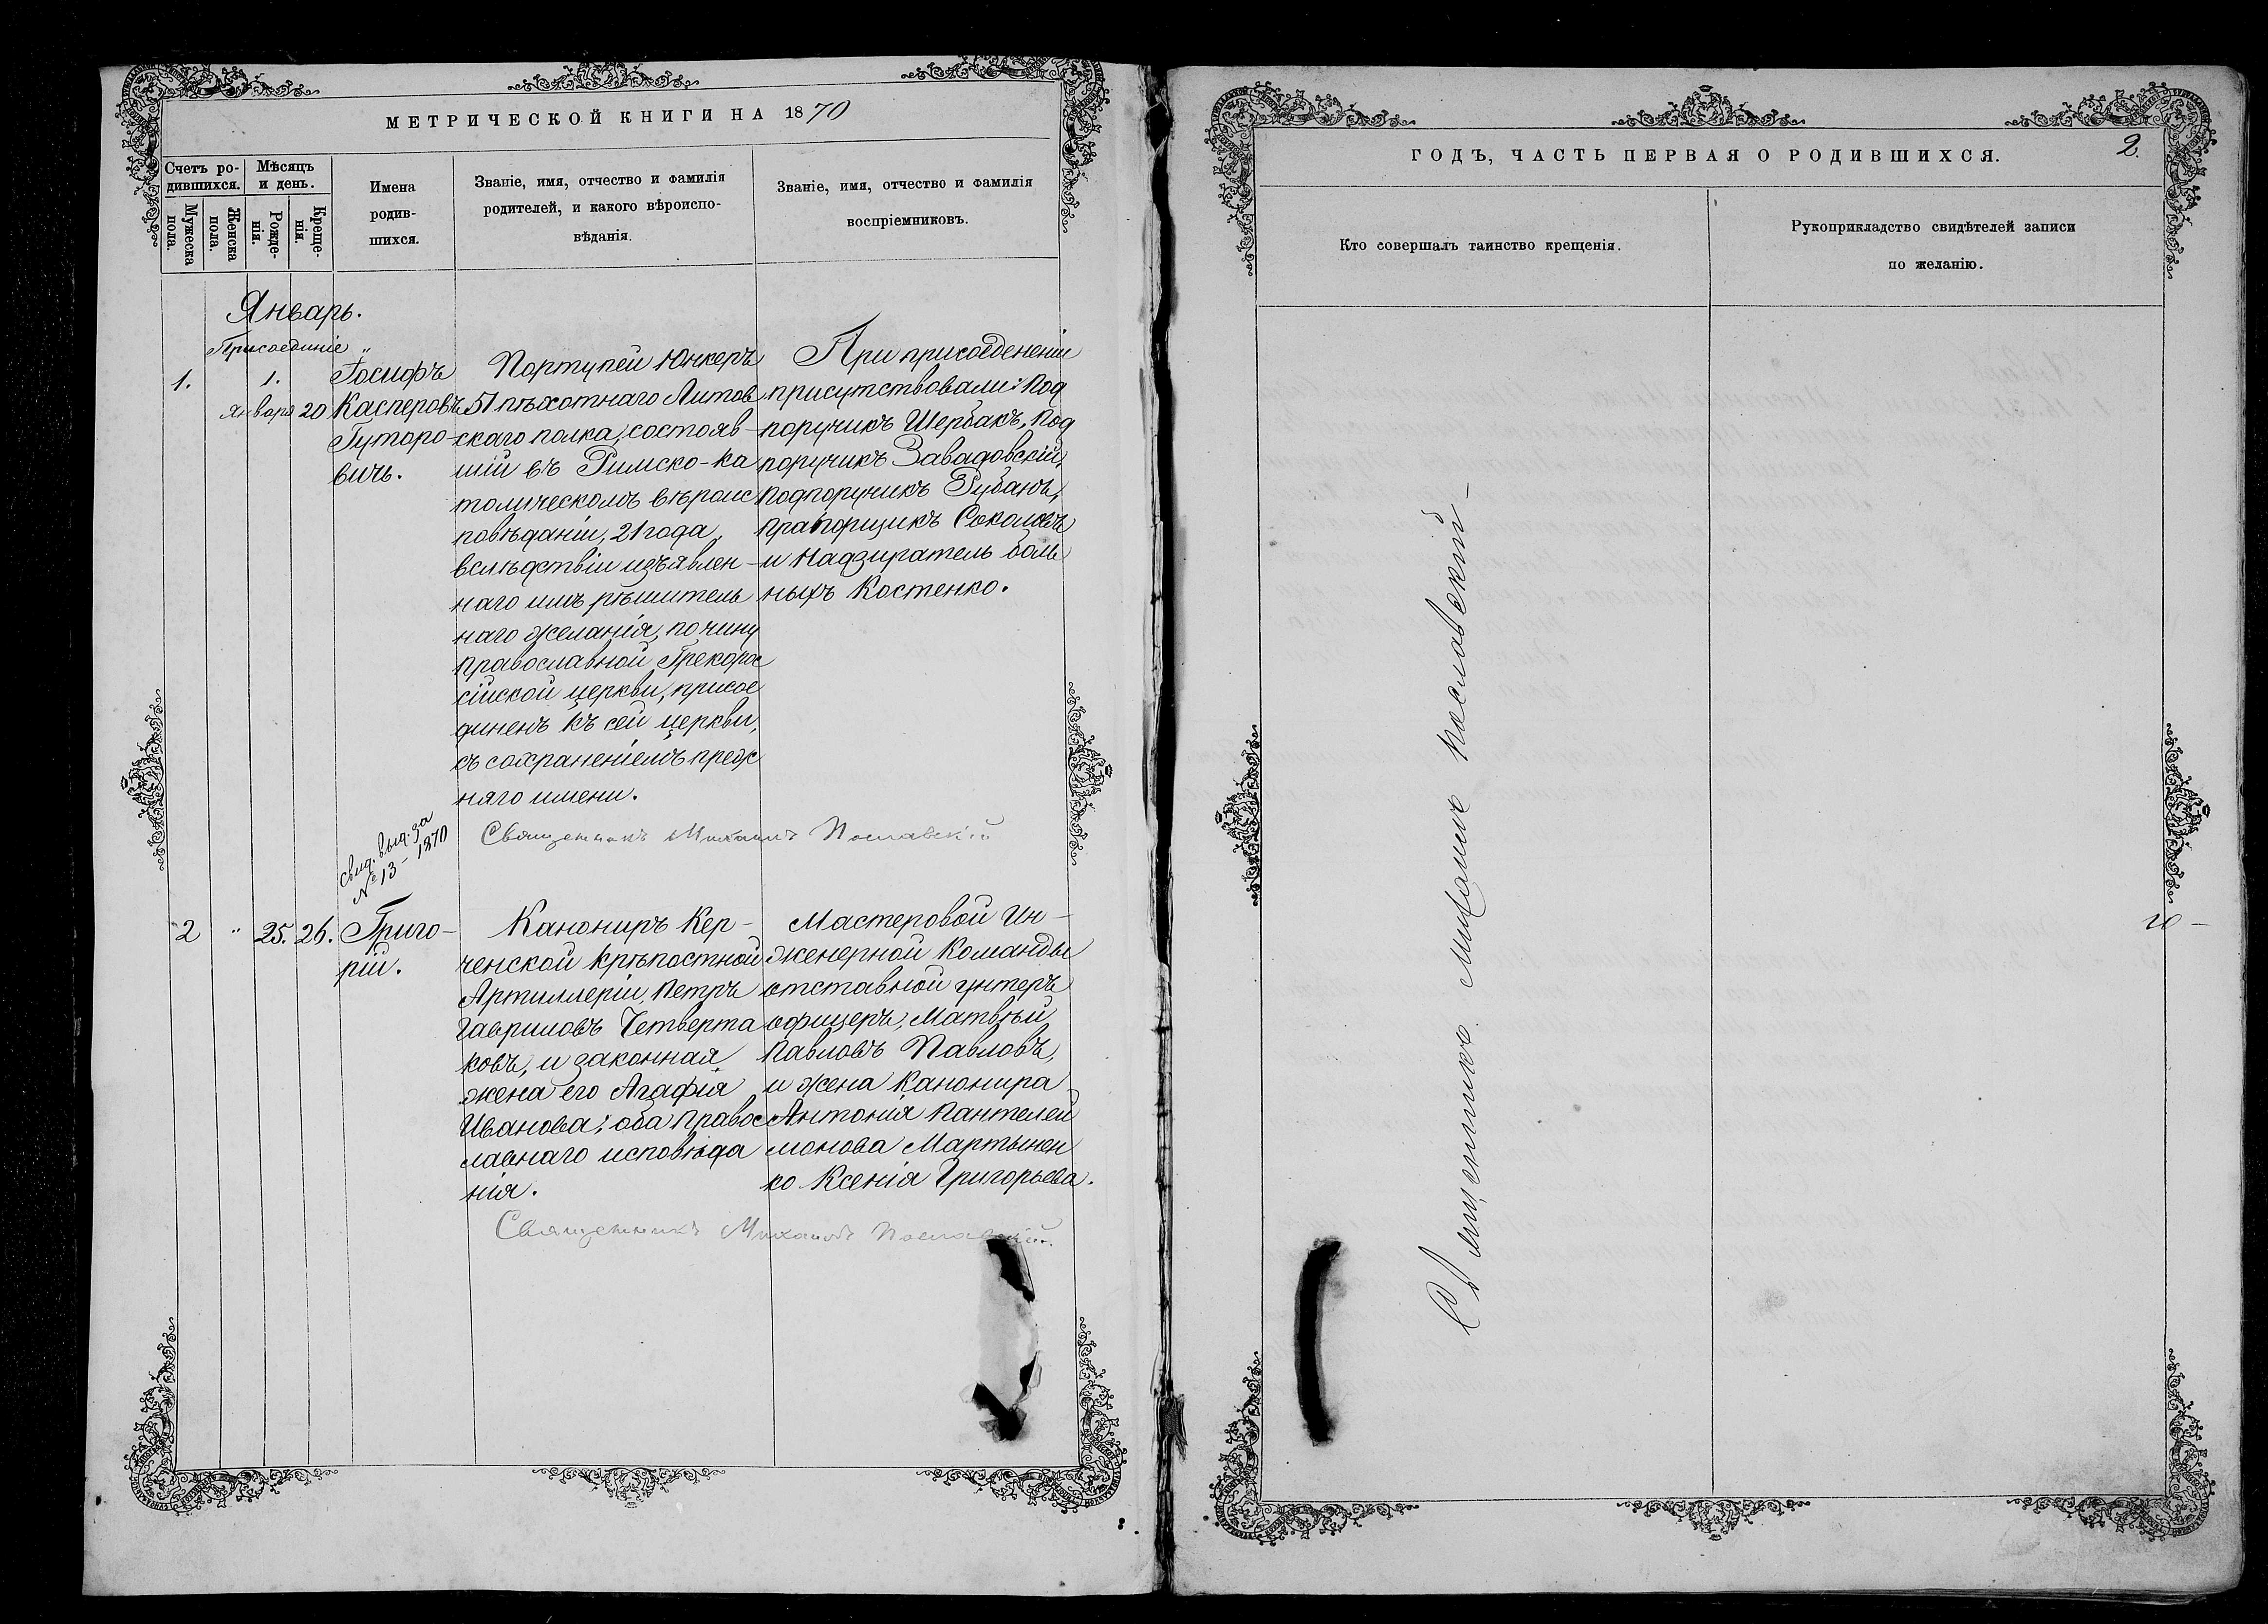 МЕТРИЧЕСКОЙ КНИГИ НА 1870
Счетъ ро-
дившихся.
Мѣсяцъ
и день.
Мужеска
пола.
Женска
пола.
Рожде-
нія.
Креще-
нія.
Имена
родив-
шихся.
Званіе, имя, отчество и фамилія
родителей, и какого вѣроиспо-
вѣданія.
Званіе, имя, отчество и фамилія
воспріемниковъ.
Январь.
Присоединіе
1.
1.
Января 20
Іосифъ
Касперовъ
Гуторо-
вичь.
Портупей Юнкеръ
51 пѣхотнаго Литов
скаго полка, состояв-
шій въ Римско-ка
толическомъ вѣроис
повѣданіи, 21 года,
вслѣдствіи изъявлен-
наго имъ рѣшитель
наго желанія, по чину
православной Грекорос
сійской церкви, присое
диненъ къ сей церкви,
съ сохраненіемъ преж
няго имени.
При присоеденении
присутствовали: Под
поручикъ Щербакъ, Под
поручикъ Завадовскій,
Подпоручикъ Рубанъ,
Прапорщикъ Соколовъ
и Надзиратель боль
ныхъ Костенко.
Священникъ Михаилъ Пославскій
свид. выд. за
№ 13 - 1870
2 " 25. 26.
Григо-
рій.
Канониръ Кер-
ченской крѣпостной
Артиллеріи, Петръ
Гавриловъ Четверта
ковъ, и законная
жена его Агафія
Иванова; оба право­с
лавнаго исповѣда
нія.
Мастеровой Ин-
женерной Команды
отставной унтеръ
офицеръ, Матвѣй
Павловъ Павловъ,
и жена Канонира
Антонія Пантелей
монова Мартынен
ко Ксенія Григорьева.
Священникъ Михаилъ Пославскій
ГОДЪ, ЧАСТЬ ПЕРВАЯ О РОДИВШИХСЯ.
2.
Кто совершалъ таинство крещенія.
Рукоприкладство свидѣтелей записи
по желанію.
Священникъ Михаилъ Пославскій